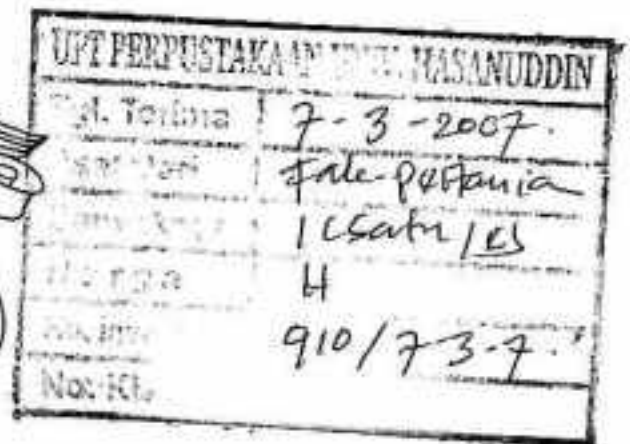 UPT PERPUSTAKAAN UNIV. HASANUDDIN
Tgl. Terima 7-3-2007.
Fak-Pertania
1 (satu) ks
H
910/7-3-7.
No. Kl.